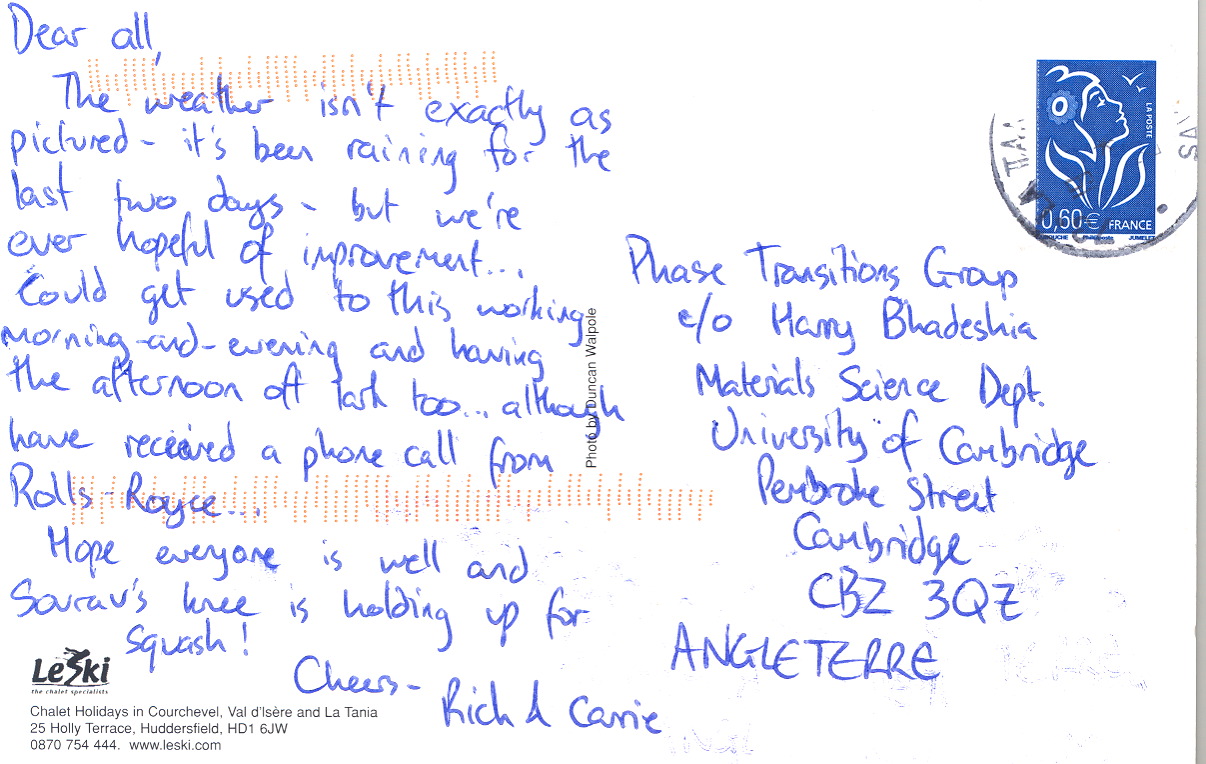 Dear all,
The weather isn't exactly as
pictured - it's been raining for the
last two days - but we're
ever hopeful of improvement...
Could get used to this working
morning-and-evening and having
the afternoon off lark too... although
have received a phone call from
Rolls-Royce...
Hope everyone is well and
Sourav's knee is holding up for
squash!
Cheers -
Rich & Carrie
LeSki
the chalet specialists
Chalet Holidays in Courchevel, Val d'Isère and La Tania
25 Holly Terrace, Huddersfield, HD1 6JW
0870 754 444. www.leski.com
Photo by Duncan Walpole
LA POSTE
0,60€ FRANCE
JUMELET
Phase Transitions Group
c/o Harry Bhadeshia
Materials Science Dept.
University of Cambridge
Pembroke Street
Cambridge
CB2 3QZ
ANGLETERRE